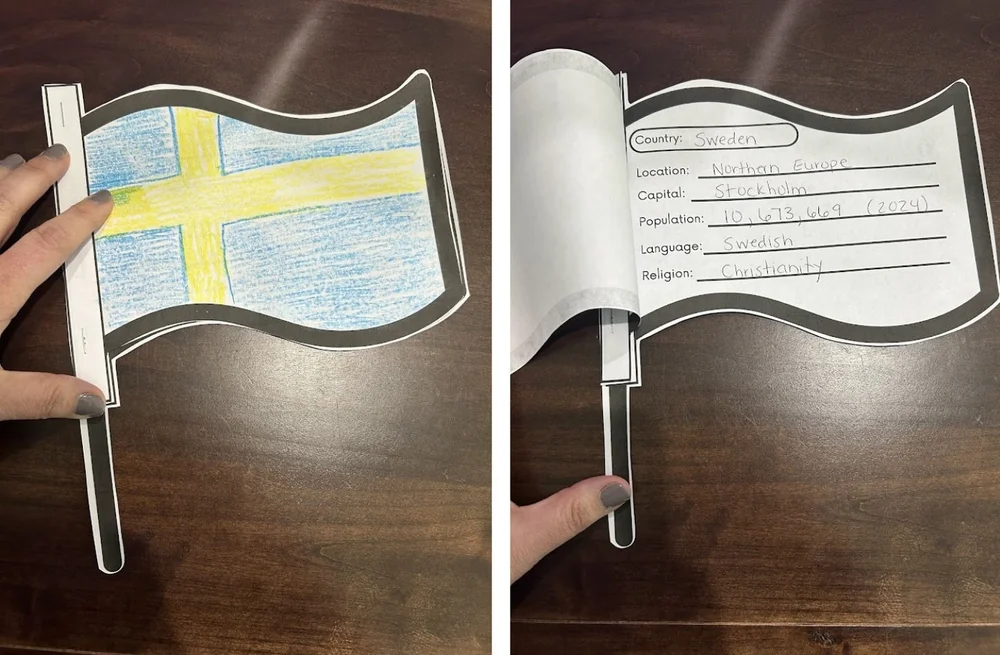 Country: Sweden
Location: Northern Europe
Capital: Stockholm
Population: 10,673,669 (2024)
Language: Swedish
Religion: Christianity